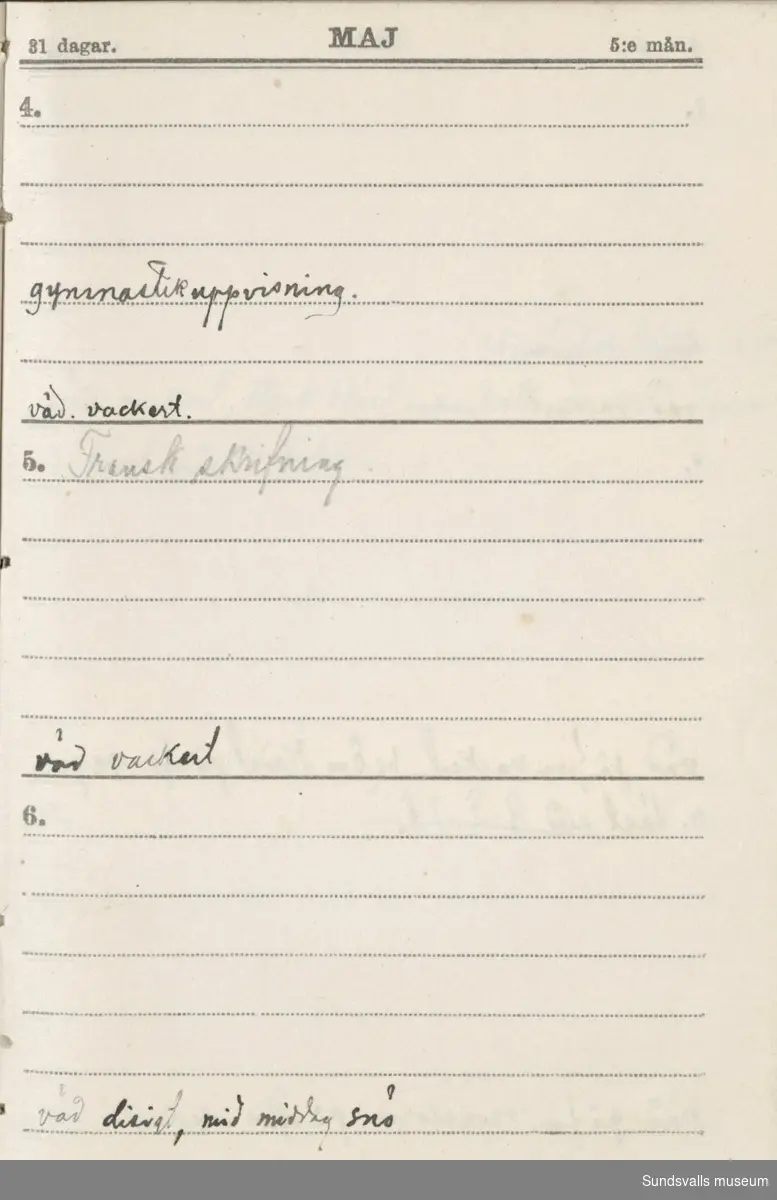 31 dagar. MAJ 5:e mån.
4.
gymnastikuppvisning.
väd. vackert.
5. Fransk skrifning
väd vackert
6.
väd disigt, mid middag snö
Sundsvalls museum